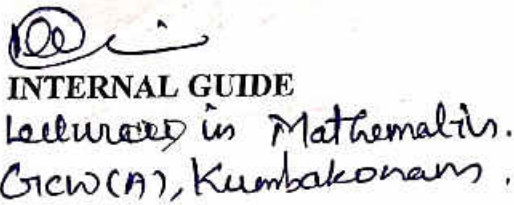 INTERNAL GUIDE
Lecturer in Mathematics.
GCW(A), Kumbakonam.